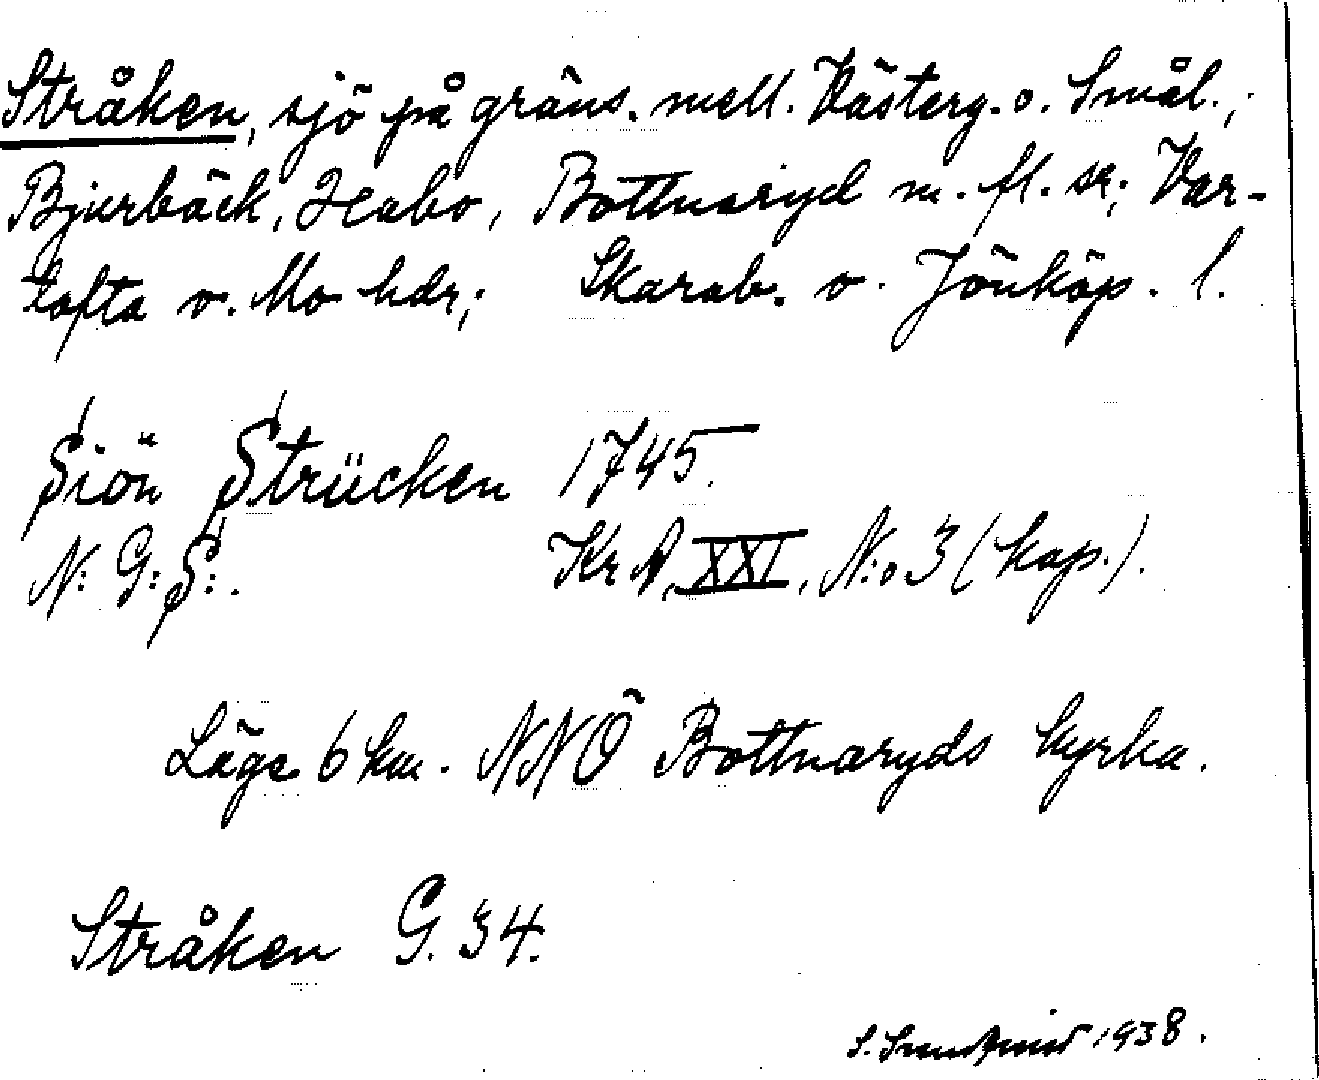 Stråken, sjö på gräns. mell. Västerg. o. Smål.;
Bjurbäck, Habo, Bottnaryd m. fl. sr; Var-
tofta o. Mo hdr; Skarab. o. Jönköp. l.
Siön Strücken 1745.
N: G: S:. Kr A, XXI, N:o 3 (kop.).
Läge 6 km. NNÖ Bottnaryds kyrka.
Stråken G. 34.
S. 1938.